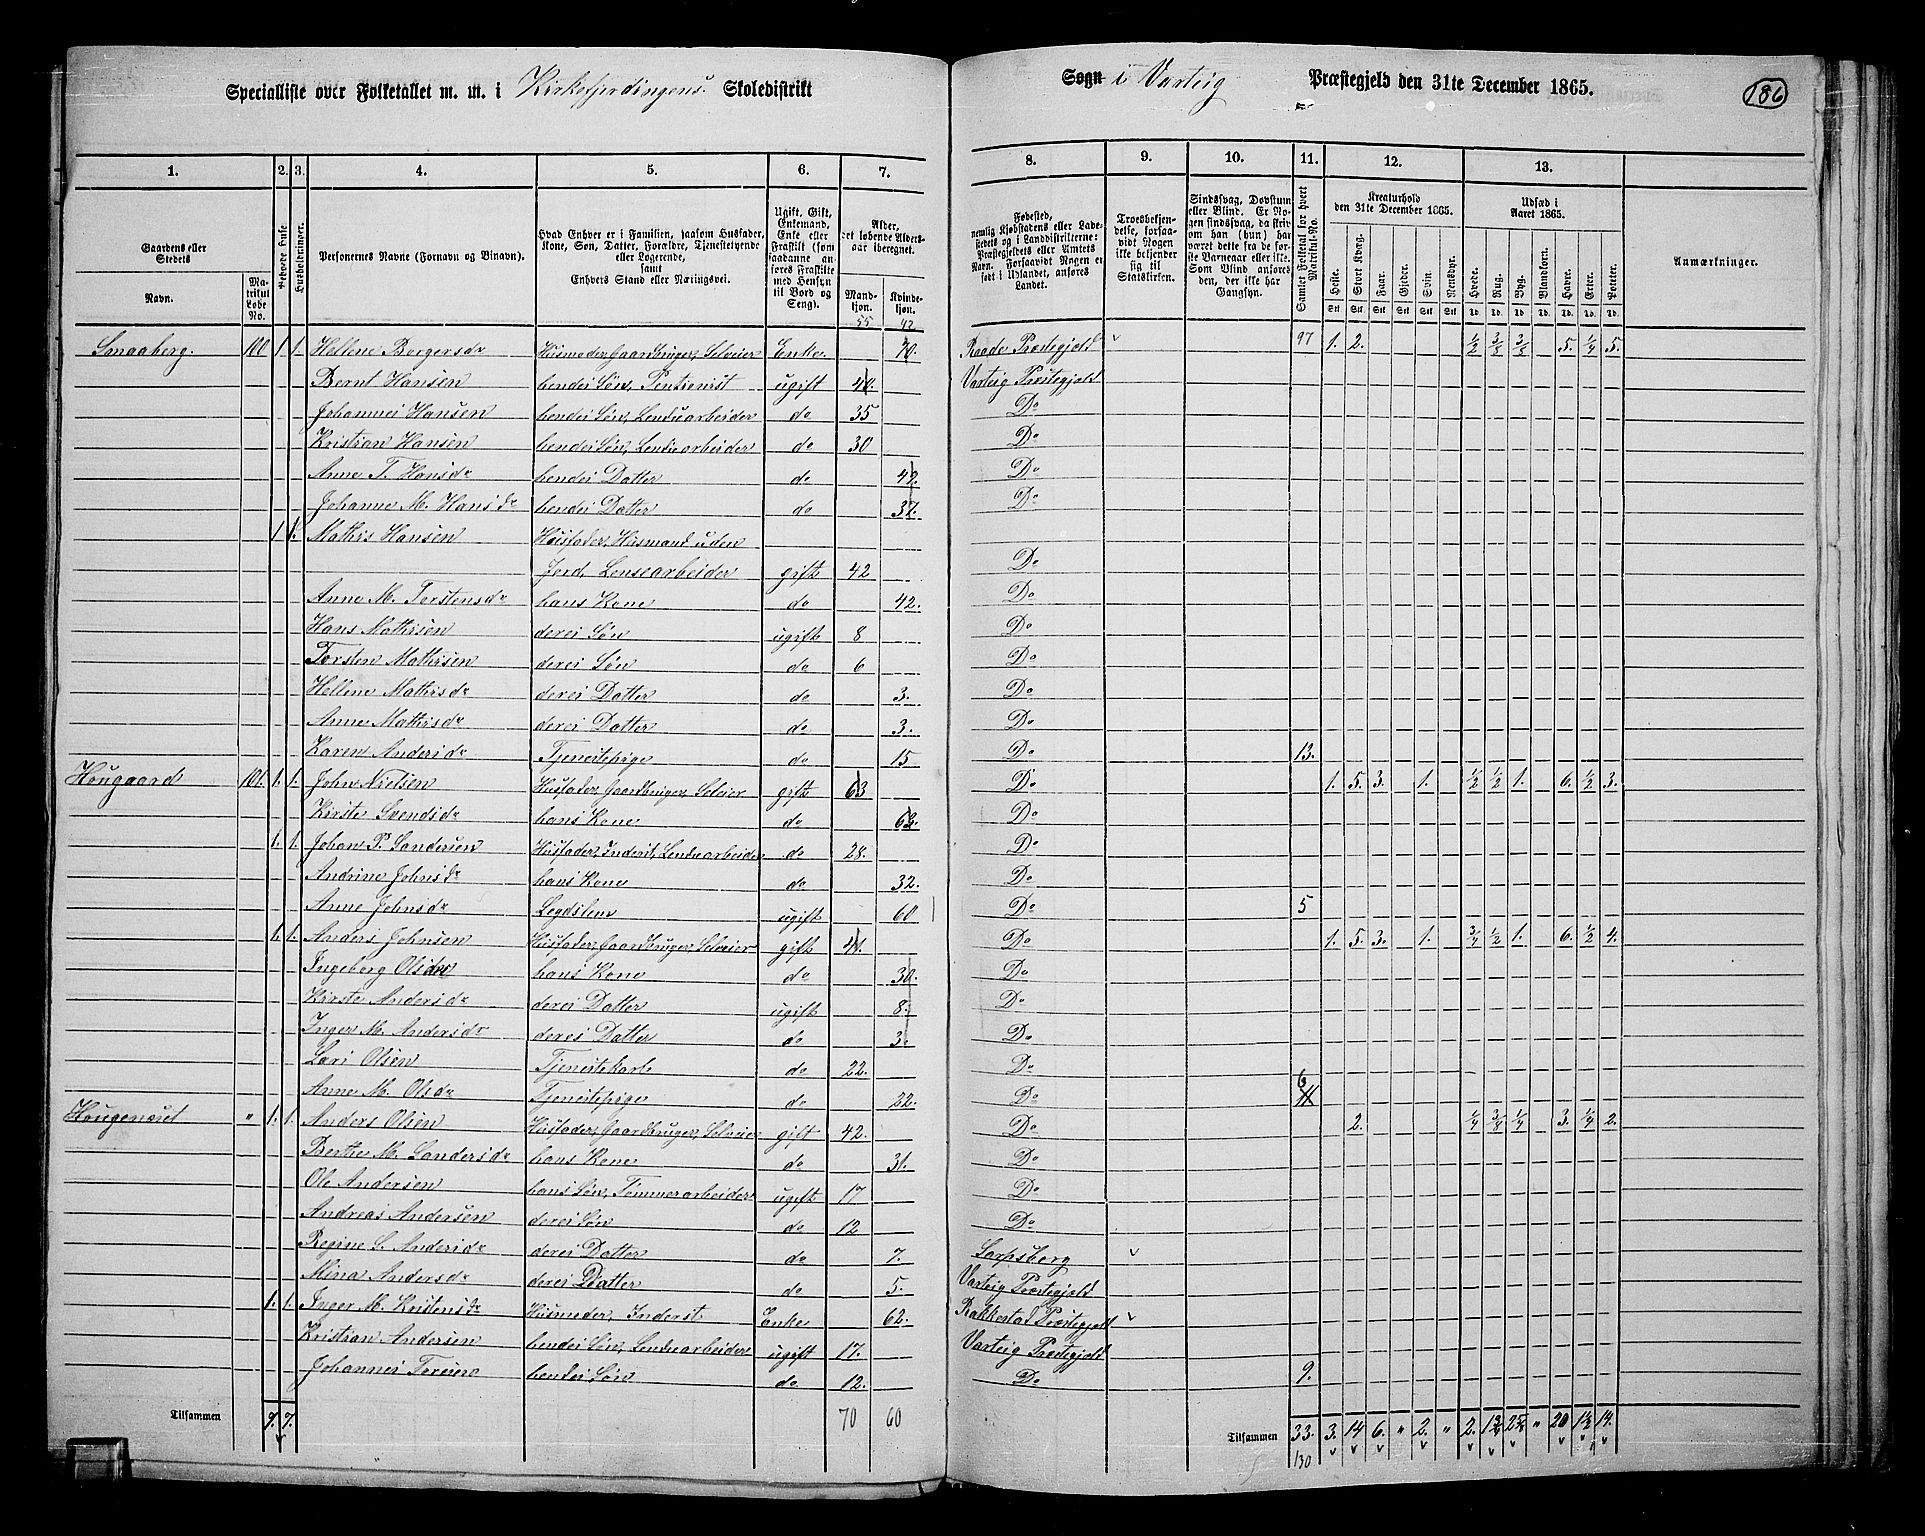 Specialliste over Folketallet m. m. i Kirkefjerdingens Skoledistrikt
Sogn i Varteig Præstegjeld den 31te December 1865.
186
1. 2. 3. 4. 5. 6. 7.
8. 9. 10. 11. 12. 13.
Gaardens eller Stedets Navn.
Matrikul Løbe No.
Beboede Huse
Husholdninger.
Personernes Navne (Fornavn og Binavn).
Hvad Enhver er i Familien, saasom Husfader, Kone, Søn, Datter, Forældre, Tjenestetyende eller Logerende, samt Enhvers Stand eller Næringsvei.
Ugift, Gift, Enkemand, Enke eller Fraskilt (som saadanne anføres Fraskilte med Hensyn til Bord og Seng).
Alder, det løbende Alders-aar iberegnet.
Mandkjøn. 55
Kvindekjøn. 42
Fødested, nemlig Kjøbstadens eller Ladestedets og i Landdistrikterne: Præstegjeldets eller Amtets Navn. Forsaavidt Nogen er født i Udlandet, anføres Landet.
Troesbekjendelse, forsaavidt Nogen ikke bekjender sig til Statskirken.
Sindssvag, Døvstum eller Blind. Er Nogen sindssvag, da skrives om han (hun) har været dette fra de første Barneaar eller ikke. Som Blind anføres den, der ikke har Gangsyn.
Samlet Folketal for hvert Matrikul-No.
Kreaturhold den 31te December 1865.
Heste. Stort Kvæg. Faar. Gjeder. Svin. Rensdyr.
Udsæd i Aaret 1865.
Hvede. Rug. Byg. Blandkorn. Havre. Erter. Poteter.
Anmærkninger.
Smaaberg. 100 1 1. Hellene Borgersdr Husmoder, Gaardbruger, Selveier Enke. 70. Raade Præstegjeld 97 1. 2. 1/2 3/8 3/8 5. 1/4 5.
Bernt Hansen hendes Søn, Pentionist ugift 40. Varteig Præstegjeld
Johannes Hansen hendes Søn, Lendsearbeider do 35 Do
Kristian Hansen hendes Søn, Lendsearbeider do 30 Do
Anne T. Hansdr hendes Datter do 42. Do
Johanne M. Hansdr hendes Datter do 37. Do
1 1. Mathis Hansen Husfader, Husmand uden
Jord, Lensearbeider gift 42 Do
Anne M. Torstensdr hans Kone do 42. Do
Hans Mathisen deres Søn ugift 8 Do
Torsten Mathisen deres Søn do 6 Do
Hellene Mathisdr deres Datter do 3. Do
Anne Mathisdr deres Datter do 3. Do
Karen Andersdr Tjenestepige do 15 Do 13.
Hougaard 101. 1. 1. John Nielsen Husfader, Gaardbruger, Selveier gift 63 Do 1. 5. 3. 1. 1/2 1/2 1. 6. 1/2 3.
Kirste Svendsdr hans Kone do 63. Do
1. 1. Johan P. Sandersen Husfader, Inderst, Lendsearbeider do 28. Do
Andrine Johnsdr hans Kone do 32. Do
Anne Johnsdr Legdslem ugift 60 Do 5
1. 1. Anders Johnsen Husfader, Gaardbruger, Selveier gift 41. Do 1. 5. 3. 1. 3/4 1/2 1. 6. 1/2 4.
Ingeborg Olsdr hans Kone do 30. Do
Kirste Andersdr deres Datter ugift 8. Do
Inger M. Andersdr deres Datter do 3. Do
Lars Olsen Tjenestekarl do 22. Do
Anne M. Olsdr Tjenestepige do 22. Do 6 11
Hougenæset " 1. 1. Anders Olsen Husfader, Gaardbruger, Selveier gift 42. Do 2. 1/4 3/8 1/4 3. 1/4 2.
Berthe M. Sandersdr hans Kone do 31. Do
Ole Andersen hans Søn, Tømmerarbeider ugift 17 Do
Andreas Andersen deres Søn do 12 Do
Regine S. Andersdr deres Datter do 7. Sarpsborg
Mina Andersdr deres Datter do 5. Varteig Præstegjeld
1. 1. Inger M. Kristensdr Husmoder, Inderst Enke 62. Rakkestad Præstegjeld
Kristian Andersen hendes Søn, Lendsearbeider ugift 17. Varteig Præstegjeld
Johannes hendes Søn do 12. Do 9.
Tilsammen 7. 7. 70 60
Tilsammen 33. 3. 14 6. " 2. " 2. " 20 14.
130